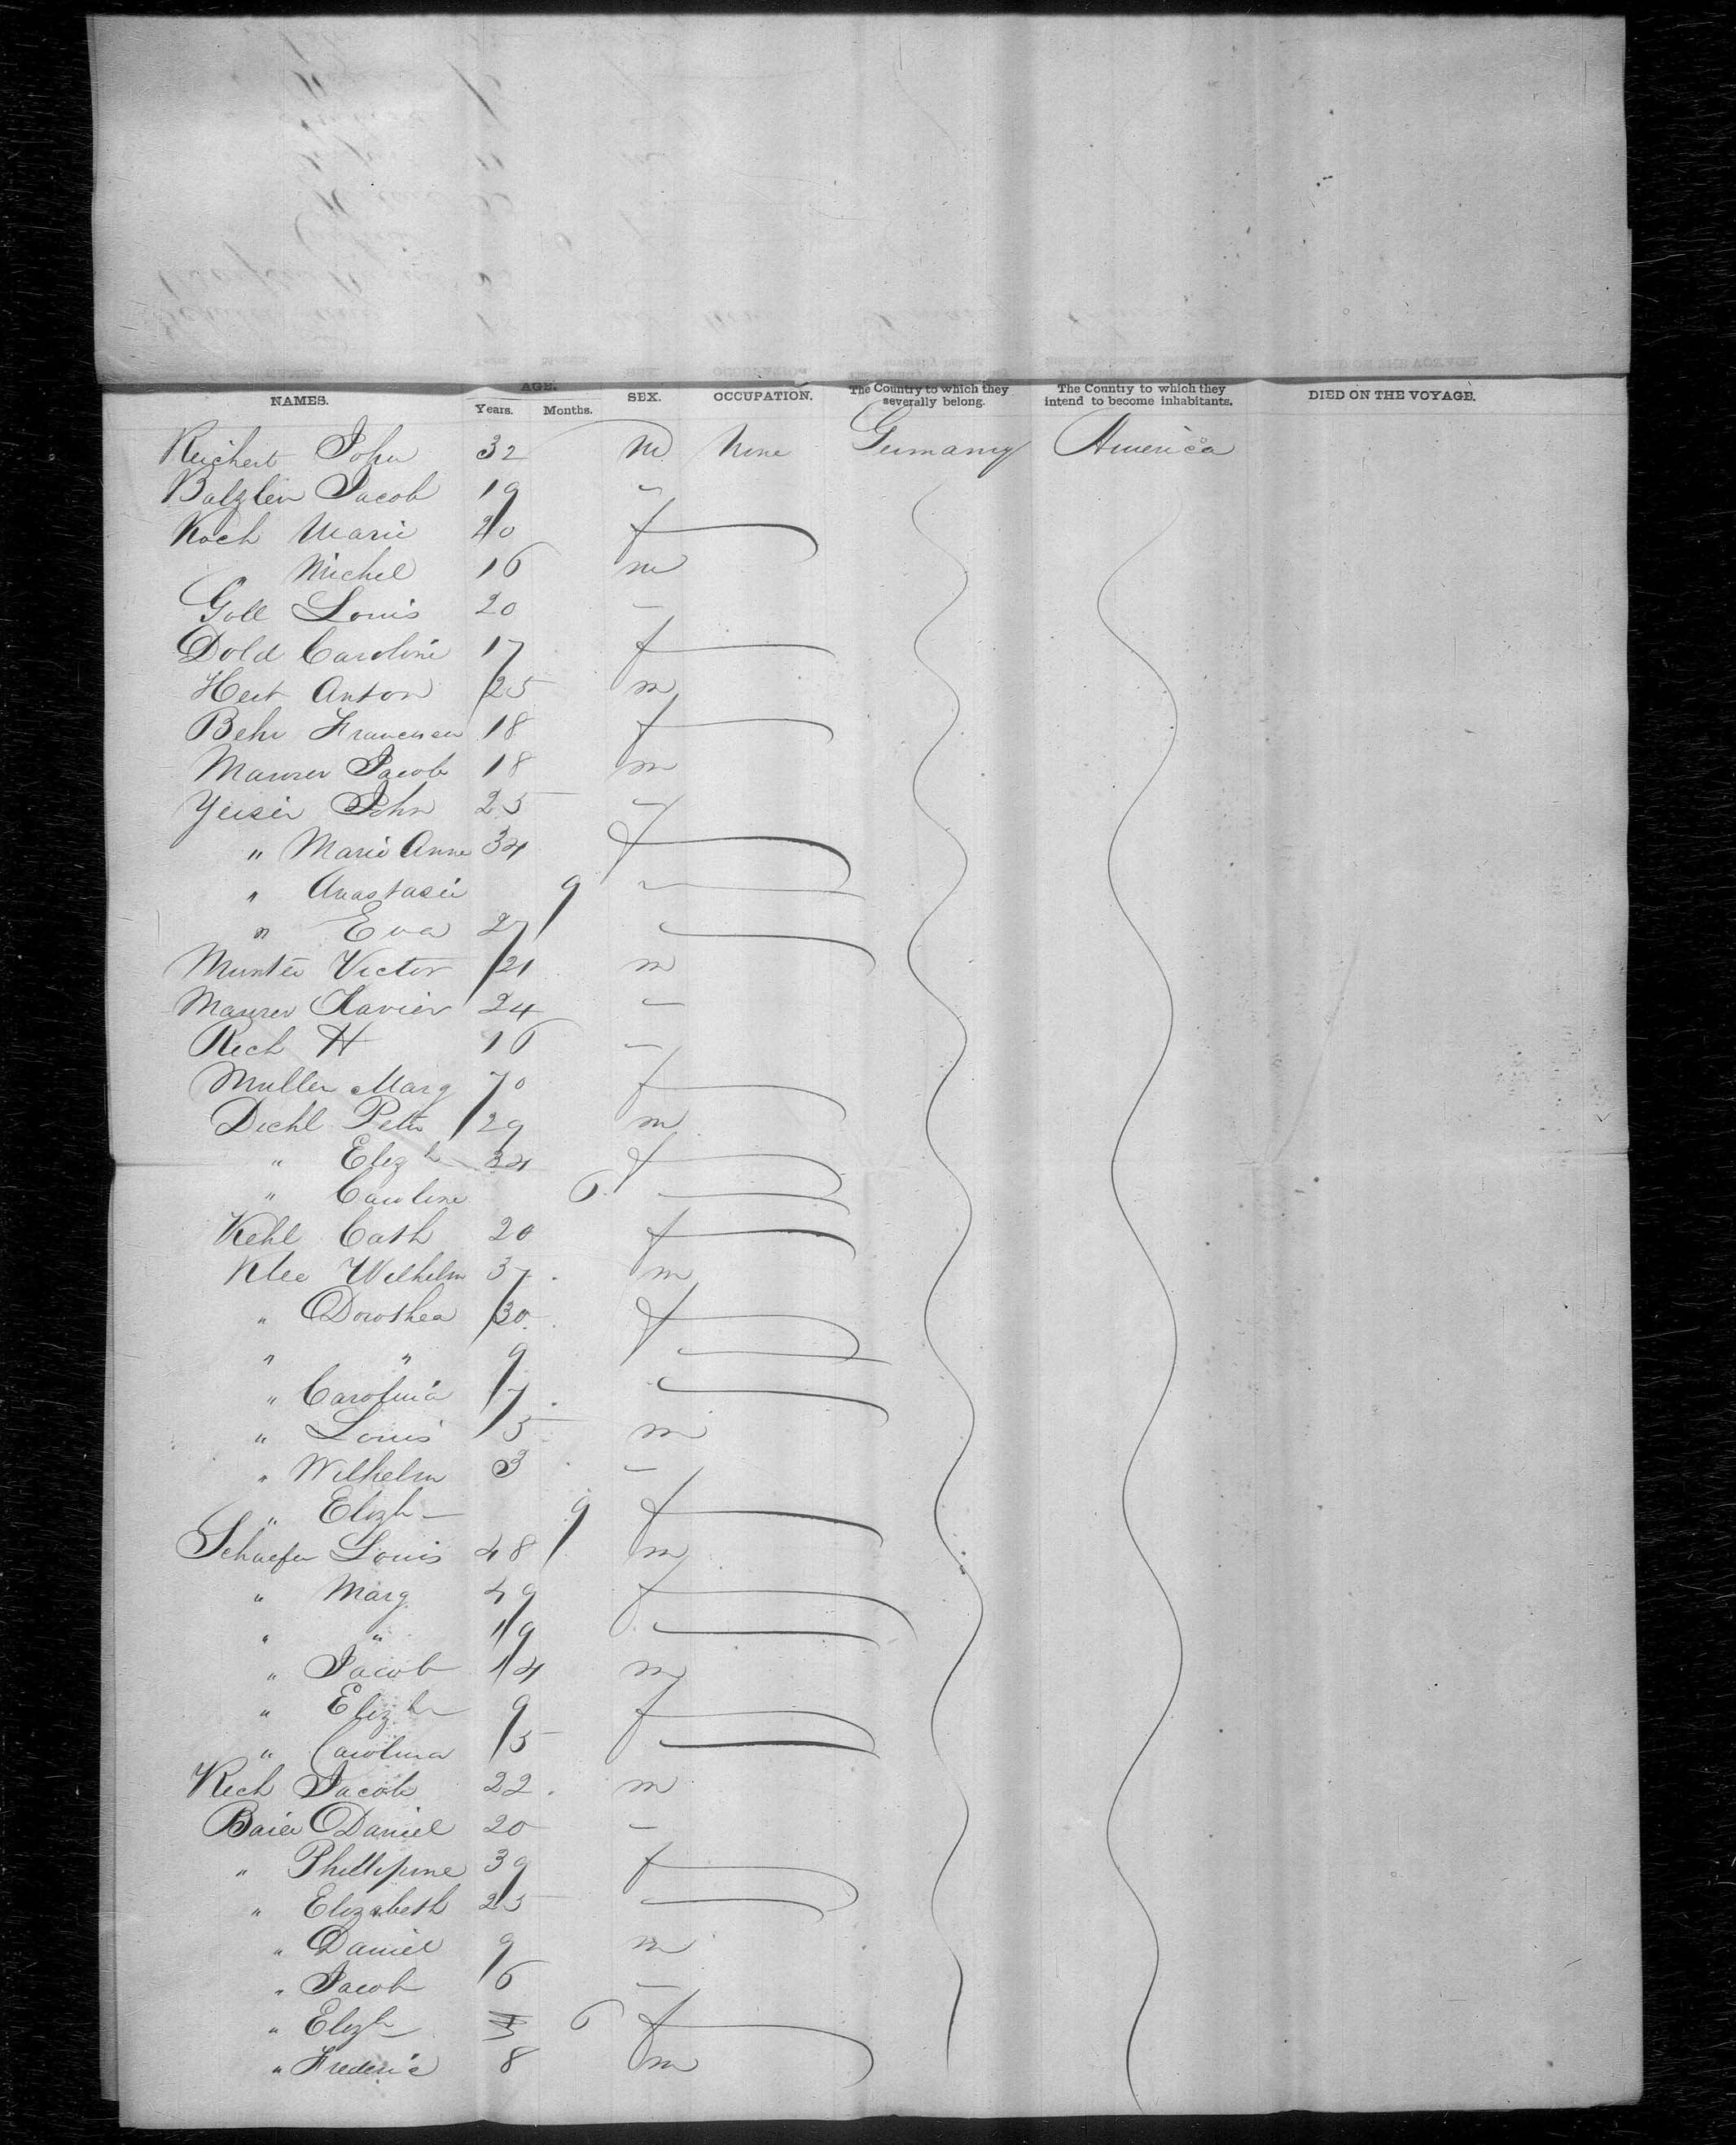 NAMES. AGE. Years. Months. SEX. OCCUPATION. The Country to which they severally belong. The Country to which they intend to become inhabitants. DIED ON THE VOYAGE.
Reichert John 32 m None Germany America
Balzlen Jacob 19 -
Koch Marie 20 f
Michel 16 m
Goll Louis 20 -
Dold Caroline 17 f
Anton 25 m
Behr 18 f
Maurer Jacob 18 m
John 25 -
" Marie Anne 34 f
" Anastasie 9 "
" Eva 27
Victor 21 m
Maurer Xavier 24 -
Rech H 16 -
Muller Marg 70 f
Diehl Peter 29 m
" Elizh 34 f
" Caroline 6
Kehl Cath 20 f
Klee Wilhelm 37 m
" Dorothea 30 f
" " 9
" Carolina 7
" Louis 5 m
" Wilhelm 3 -
" Elizh 9 f
Schaefer Louis 48 m
" Marg 49 f
" " 19
" Jacob 14 m
" Elizh 9 f
" Carolina 5
Rech Jacob 22 m
Baier Daniel 20 -
" Phillipine 39 f
" Elizabeth 25
" Daniel 9 m
" Jacob 6 -
" Elizh 6 f
" Frederic 8 m